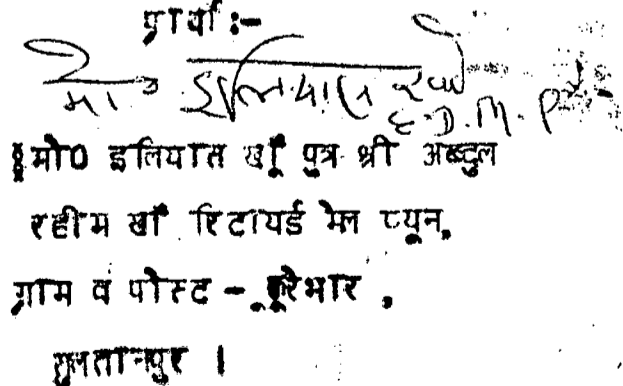 प्रार्थी :-
मो० इलियास खाँ
E.D.M.P.
मो0 इलियास खाँ पुत्र श्री अब्दुल
रहीम खाँ रिटायर्ड मेल प्यून,
ग्राम व पोस्ट - कूरेभार ,
सुलतानपुर ।